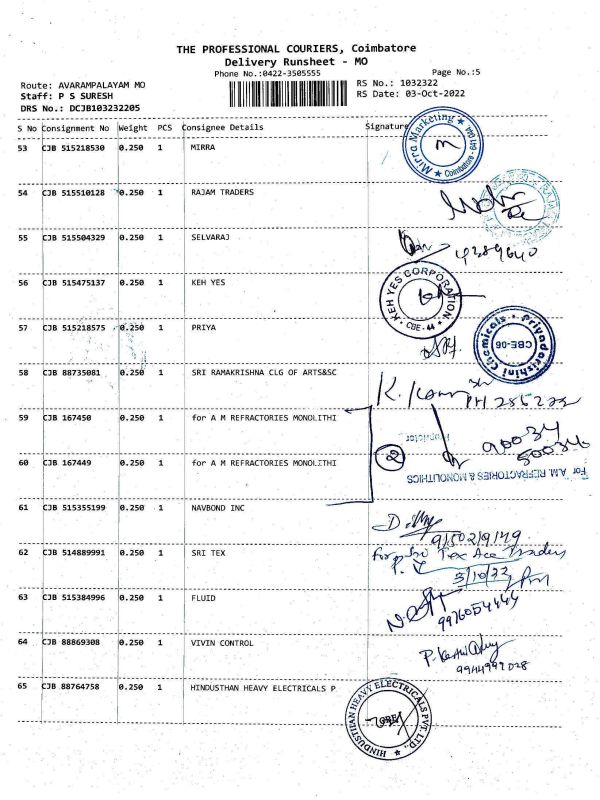 THE PROFESSIONAL COURIERS, Coimbatore
Delivery Runsheet - MO
Phone No.:0422-3505555 Page No.:5
Route: AVARAMPALAYAM MO RS No.: 1032322
Staff: P S SURESH RS Date: 03-Oct-2022
DRS No.: DCJB103232205
S No Consignment No Weight PCS Consignee Details Signature
53 CJB 515218530 0.250 1 MIRRA
Mirra Marketing Coimbatore - 641 048
54 CJB 515510128 0.250 1 RAJAM TRADERS
55 CJB 515504329 0.250 1 SELVARAJ
56 CJB 515475137 0.250 1 KEH YES
KEH YES CORPORATION CBE - 44
57 CJB 515218575 0.250 1 PRIYA
Priyadarishini Chemicals CBE-06
58 CJB 88735081 0.250 1 SRI RAMAKRISHNA CLG OF ARTS&SC
59 CJB 167450 0.250 1 for A M REFRACTORIES MONOLITHI
90034
50034
2
60 CJB 167449 0.250 1 for A M REFRACTORIES MONOLITHI
For A.M. REFRACTORIES & MONOLITHICS
61 CJB 515355199 0.250 1 NAVBOND INC
62 CJB 514889991 0.250 1 SRI TEX
for Sri Tex Ace Traders
3/10/22
63 CJB 515384996 0.250 1 FLUID
9976054444
64 CJB 88869308 0.250 1 VIVIN CONTROL
65 CJB 88764758 0.250 1 HINDUSTHAN HEAVY ELECTRICALS P
HINDUSTHAN HEAVY ELECTRICALS PVT. LTD.,